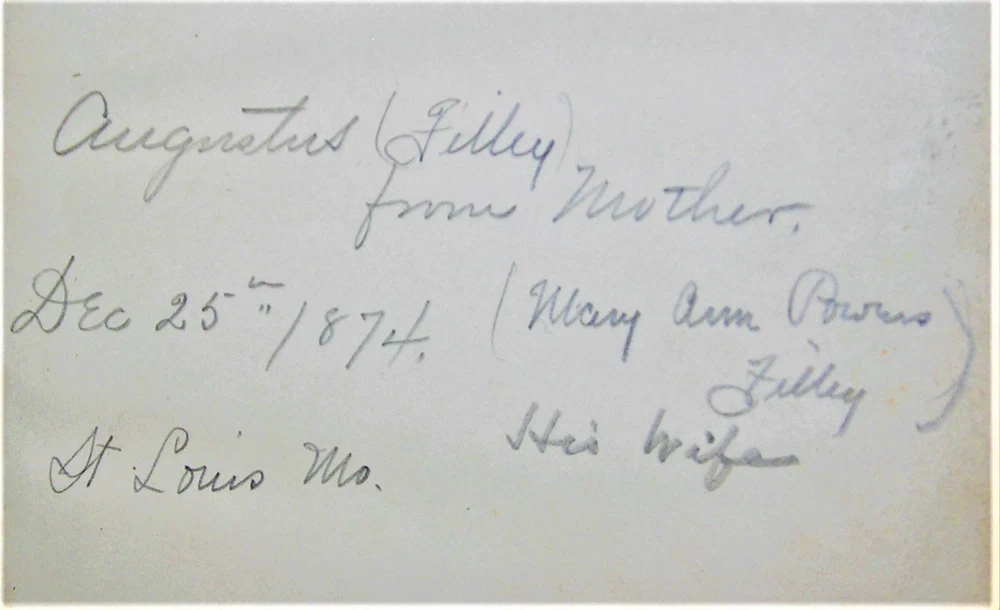 Augustus (Filley)
from Mother.
Dec 25th /1874. (Mary Ann Powers
Filley)
His Wife
St Louis Mo.